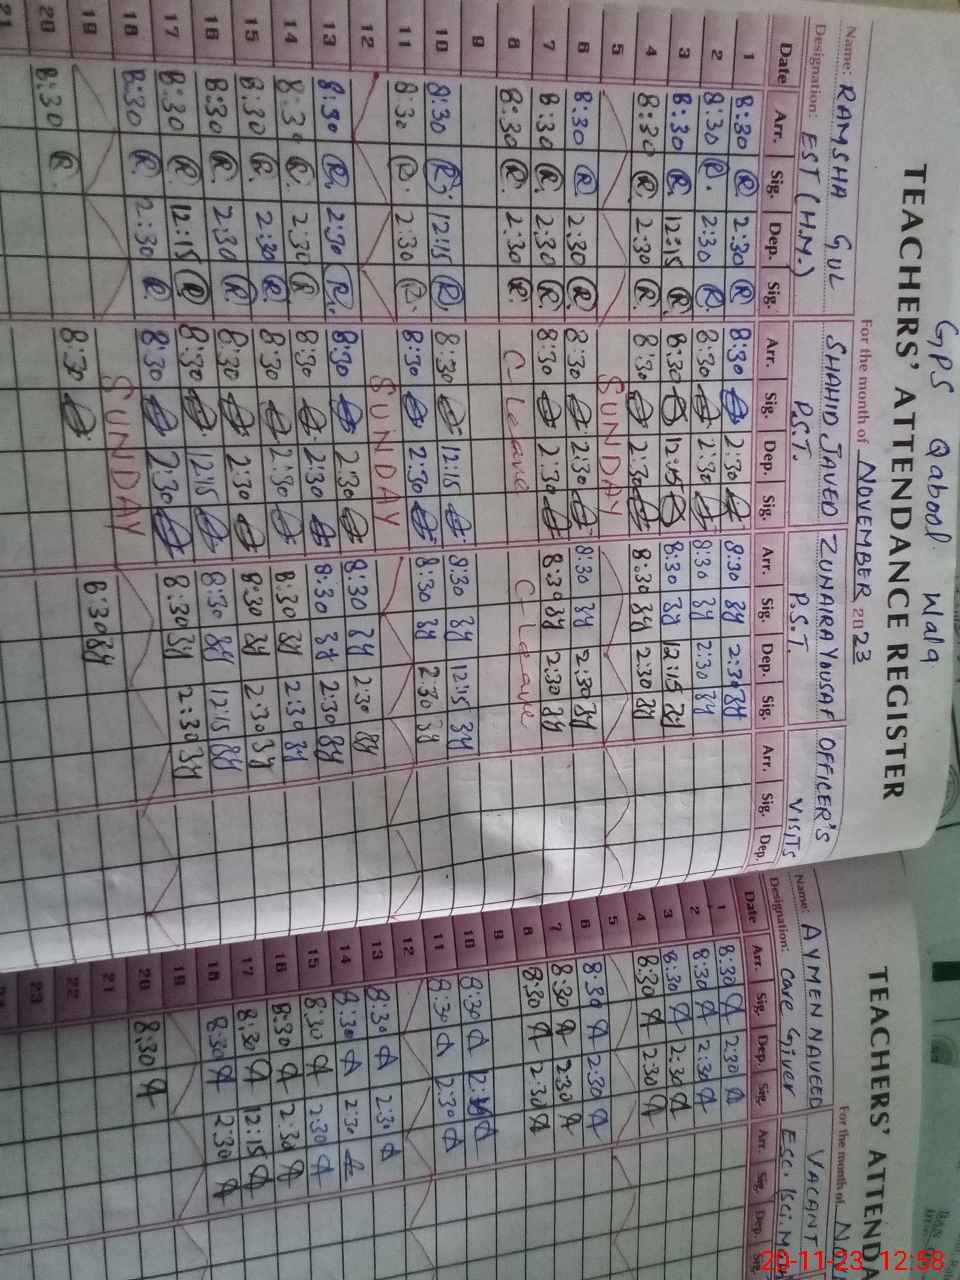 GPS Qabool Wala
TEACHERS' ATTENDANCE REGISTER
For the month of NOVEMBER 2023
Name: RAMSHA GUL SHAHID JAVED ZUNAIRA YOUSAF OFFICER'S
Designation: EST (H.M.) P.S.T. P.S.T. VISITS
Date Arr. Sig. Dep. Sig. Arr. Sig. Dep. Sig. Arr. Sig. Dep. Sig. Arr. Sig. Dep.
1 8:30 R 2:30 R 8:30 2:30 8:30 2:30
2 8:30 R. 2:30 R 8:30 2:30 8:30 2:30
3 8:30 R 12:15 R 8:30 12:15 8:30 12:15
4 8:30 R 2:30 R. 8:30 2:30 8:30 2:30
5 SUNDAY
6 8:30 R 2:30 R. 8:30 2:30 8:30 2:30
7 8:30 R. 2:30 R. 8:30 2:30 8:30 2:30
8 8:30 R. 2:30 R. C-Leave C-Leave
9
10 8:30 R. 12:15 R 8:30 12:15 8:30 12:15
11 8:30 R. 2:30 R 8:30 2:30 8:30 2:30
12 SUNDAY
13 8:30 R. 2:30 R. 8:30 2:30 8:30 2:30
14 8:30 R. 2:30 R 8:30 2:30 8:30 2:30
15 8:30 R. 2:30 R 8:30 2:30 8:30 2:30
16 8:30 R. 2:30 R 8:30 2:30 8:30 2:30
17 8:30 R. 12:15 R 8:30 12:15 8:30 12:15
18 8:30 R. 2:30 R 8:30 2:30 8:30 2:30
19 SUNDAY
20 8:30 R. 8:30 8:30
21
TEACHERS' ATTENDA
For the month of NO
Name: AYMEN NAVEED VACANT
Designation: Care Giver ESE. Sci. M
Date Arr. Sig. Dep. Sig. Arr. Sig. Dep. Sig.
1 8:30 A 2:30 A
2 8:30 A 2:30 A
3 8:30 A 2:30 A
4 8:30 A 2:30 A
5
6 8:30 A 2:30 A
7 8:30 A 2:30 A
8 8:30 A 2:30 A
9
10 8:30 A A
11 8:30 A 2:30 A
12
13 8:30 A 2:30 A
14 8:30 A 2:30 A
15 8:30 A 2:30 A
16 8:30 A 2:30 A
17 8:30 A 12:15 A
18 8:30 A 2:30 A
19
20 8:30 A
21
22
23
20-11-23 12:58